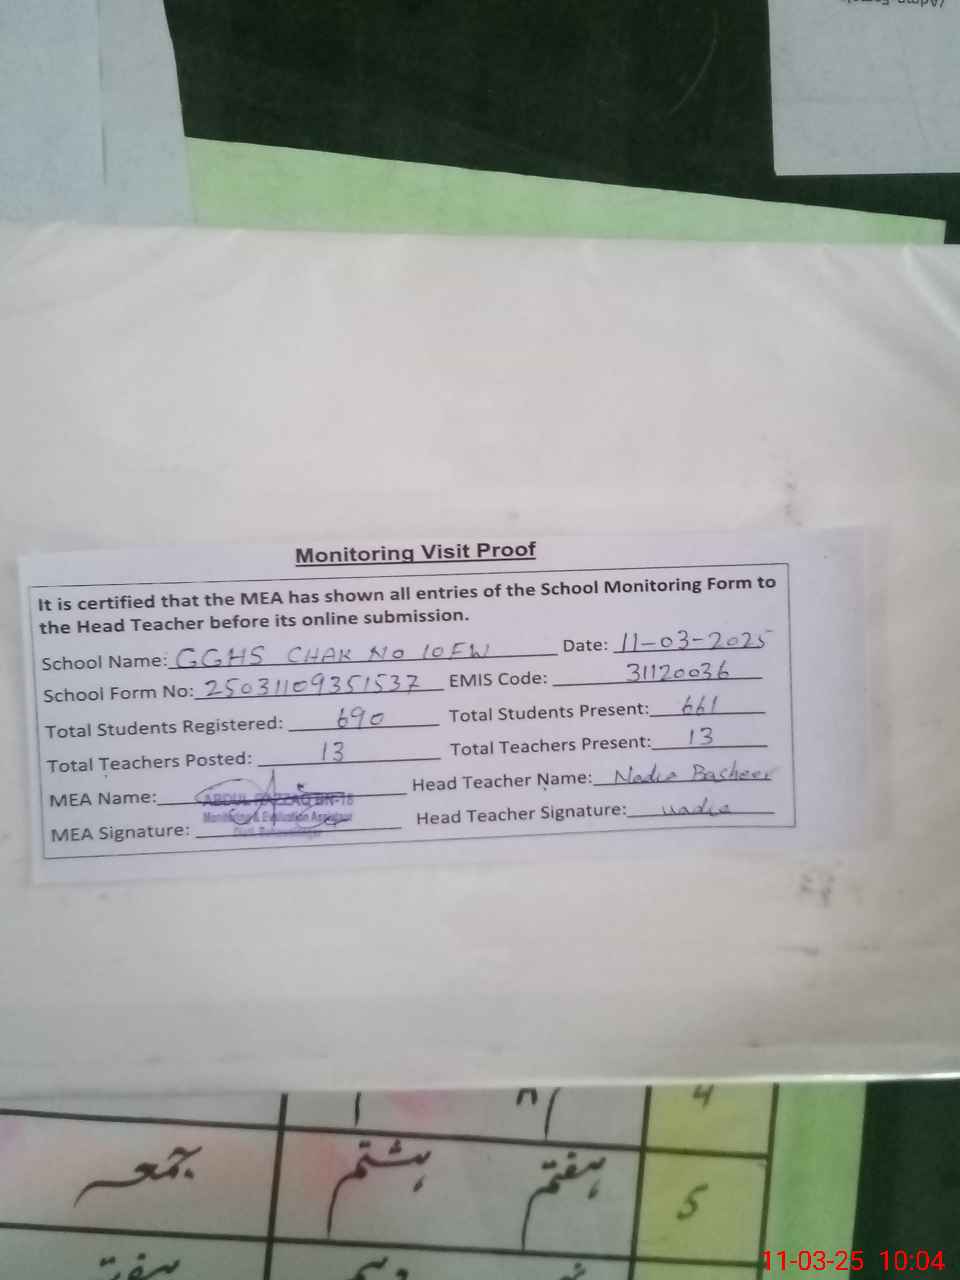 Monitoring Visit Proof
It is certified that the MEA has shown all entries of the School Monitoring Form to
the Head Teacher before its online submission.
School Name: GGHS CHAK NO 10FW Date: 11-03-2025
School Form No: 25031109351537 EMIS Code: 31120036
Total Students Registered: 690 Total Students Present: 661
Total Teachers Posted: 13 Total Teachers Present: 13
MEA Name: ABDUL RAZZAQ BN-18 Head Teacher Name: Nadia Basheer
Monitoring & Evaluation Assistant
MEA Signature: Head Teacher Signature: nadia
4
جمعہ ہشتم ہفتم 5
11-03-25 10:04